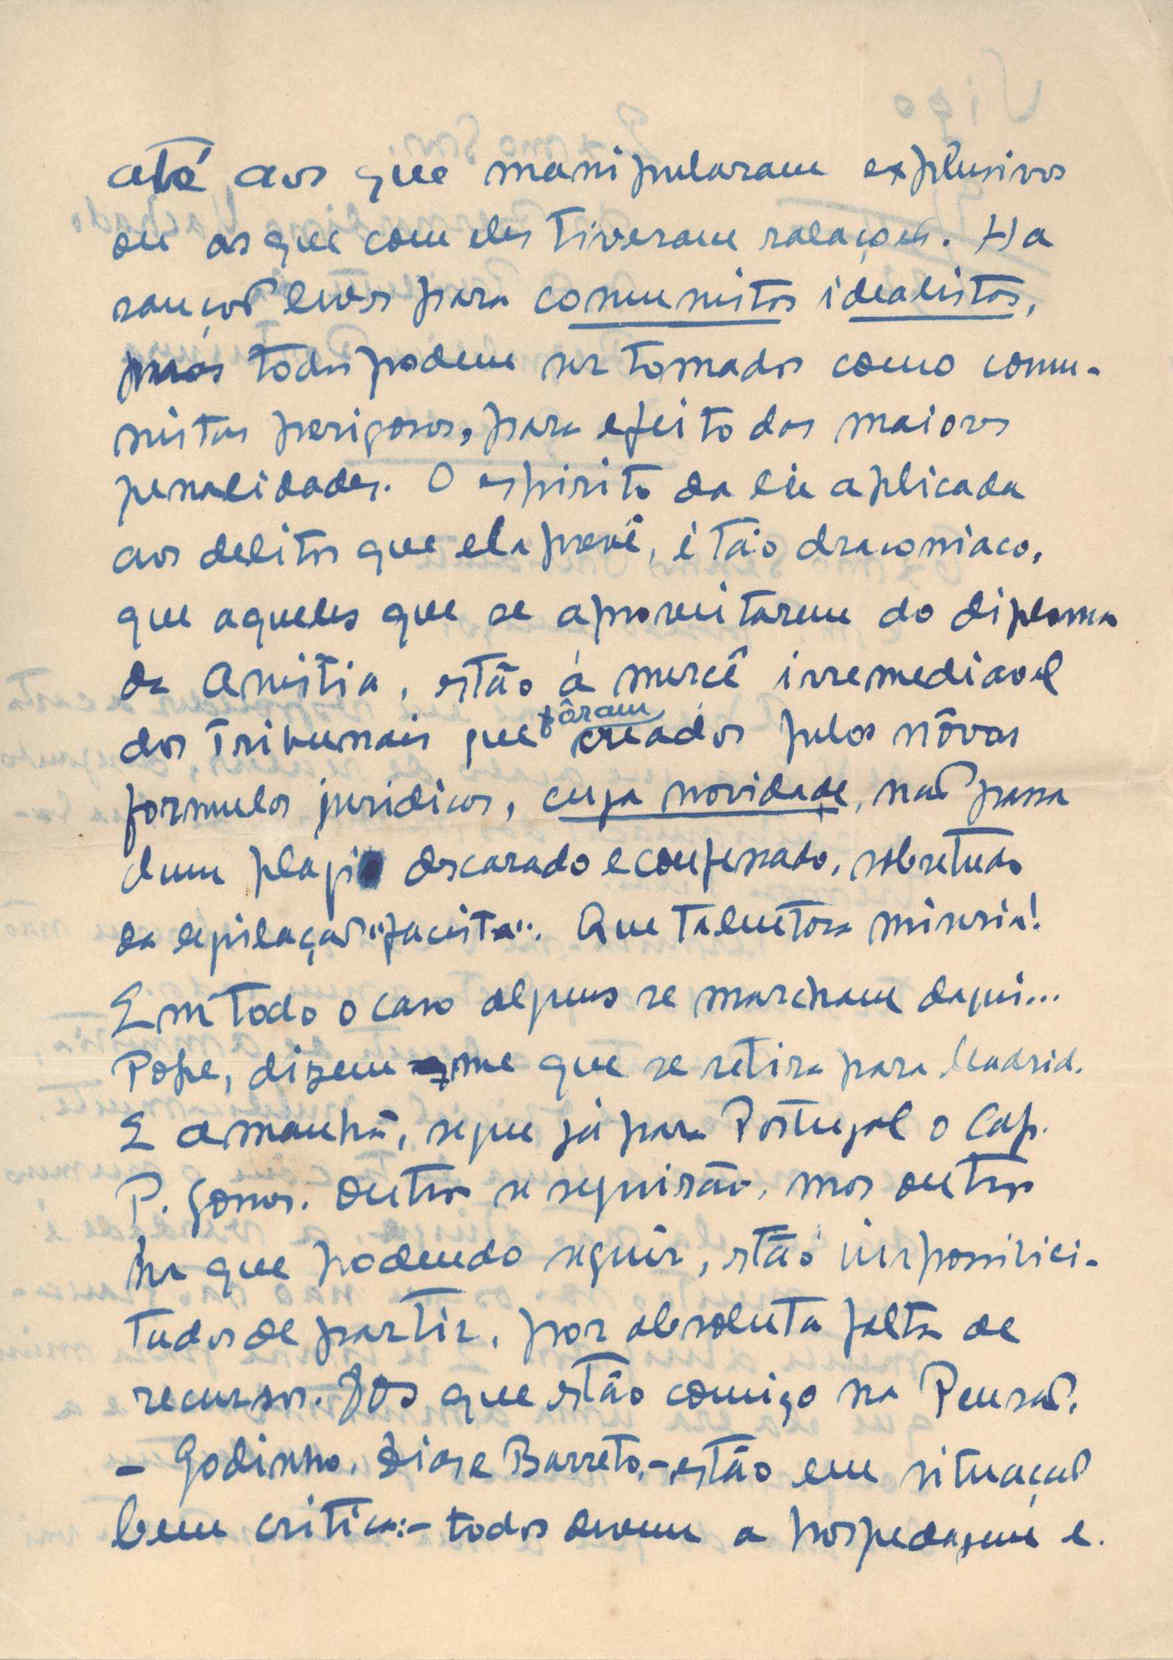 até aos que manipularam explosivos
ou os que com eles tiveram relações. Ha
sanções leves para comunistas idealistas,
mas todos podem ser tomados como comu-
nistas perigosos, para efeito das maiores
penalidades. O espirito da lei aplicada
aos delitos que ela prevê, é tão draconiaco,
que aqueles que se aproveitarem do diploma
da Amistia, estão á mercê irremediavel
dos Tribunais que fôram creados pelas nóvas
formulas juridicas, cuja novidade, não passa
dum plagio descarado e confessado, sobretudo
da legislação "facista". Que miseria!
Em todo o caso alguns se marcham daqui...
Pope, dizem-me que se retira para Madrid.
E amanhã, segue já para Portugal o Cap.
P. Gomes. Outros se seguirão, mas outros
ha que podendo seguir, estão impossibili-
tados de partir, por absoluta falta de
recursos. Os que estão comigo na Pensão,
- Godinho, Dias e Barreto, - estão em situação
bem critica: - todos devem a hospedagem e.